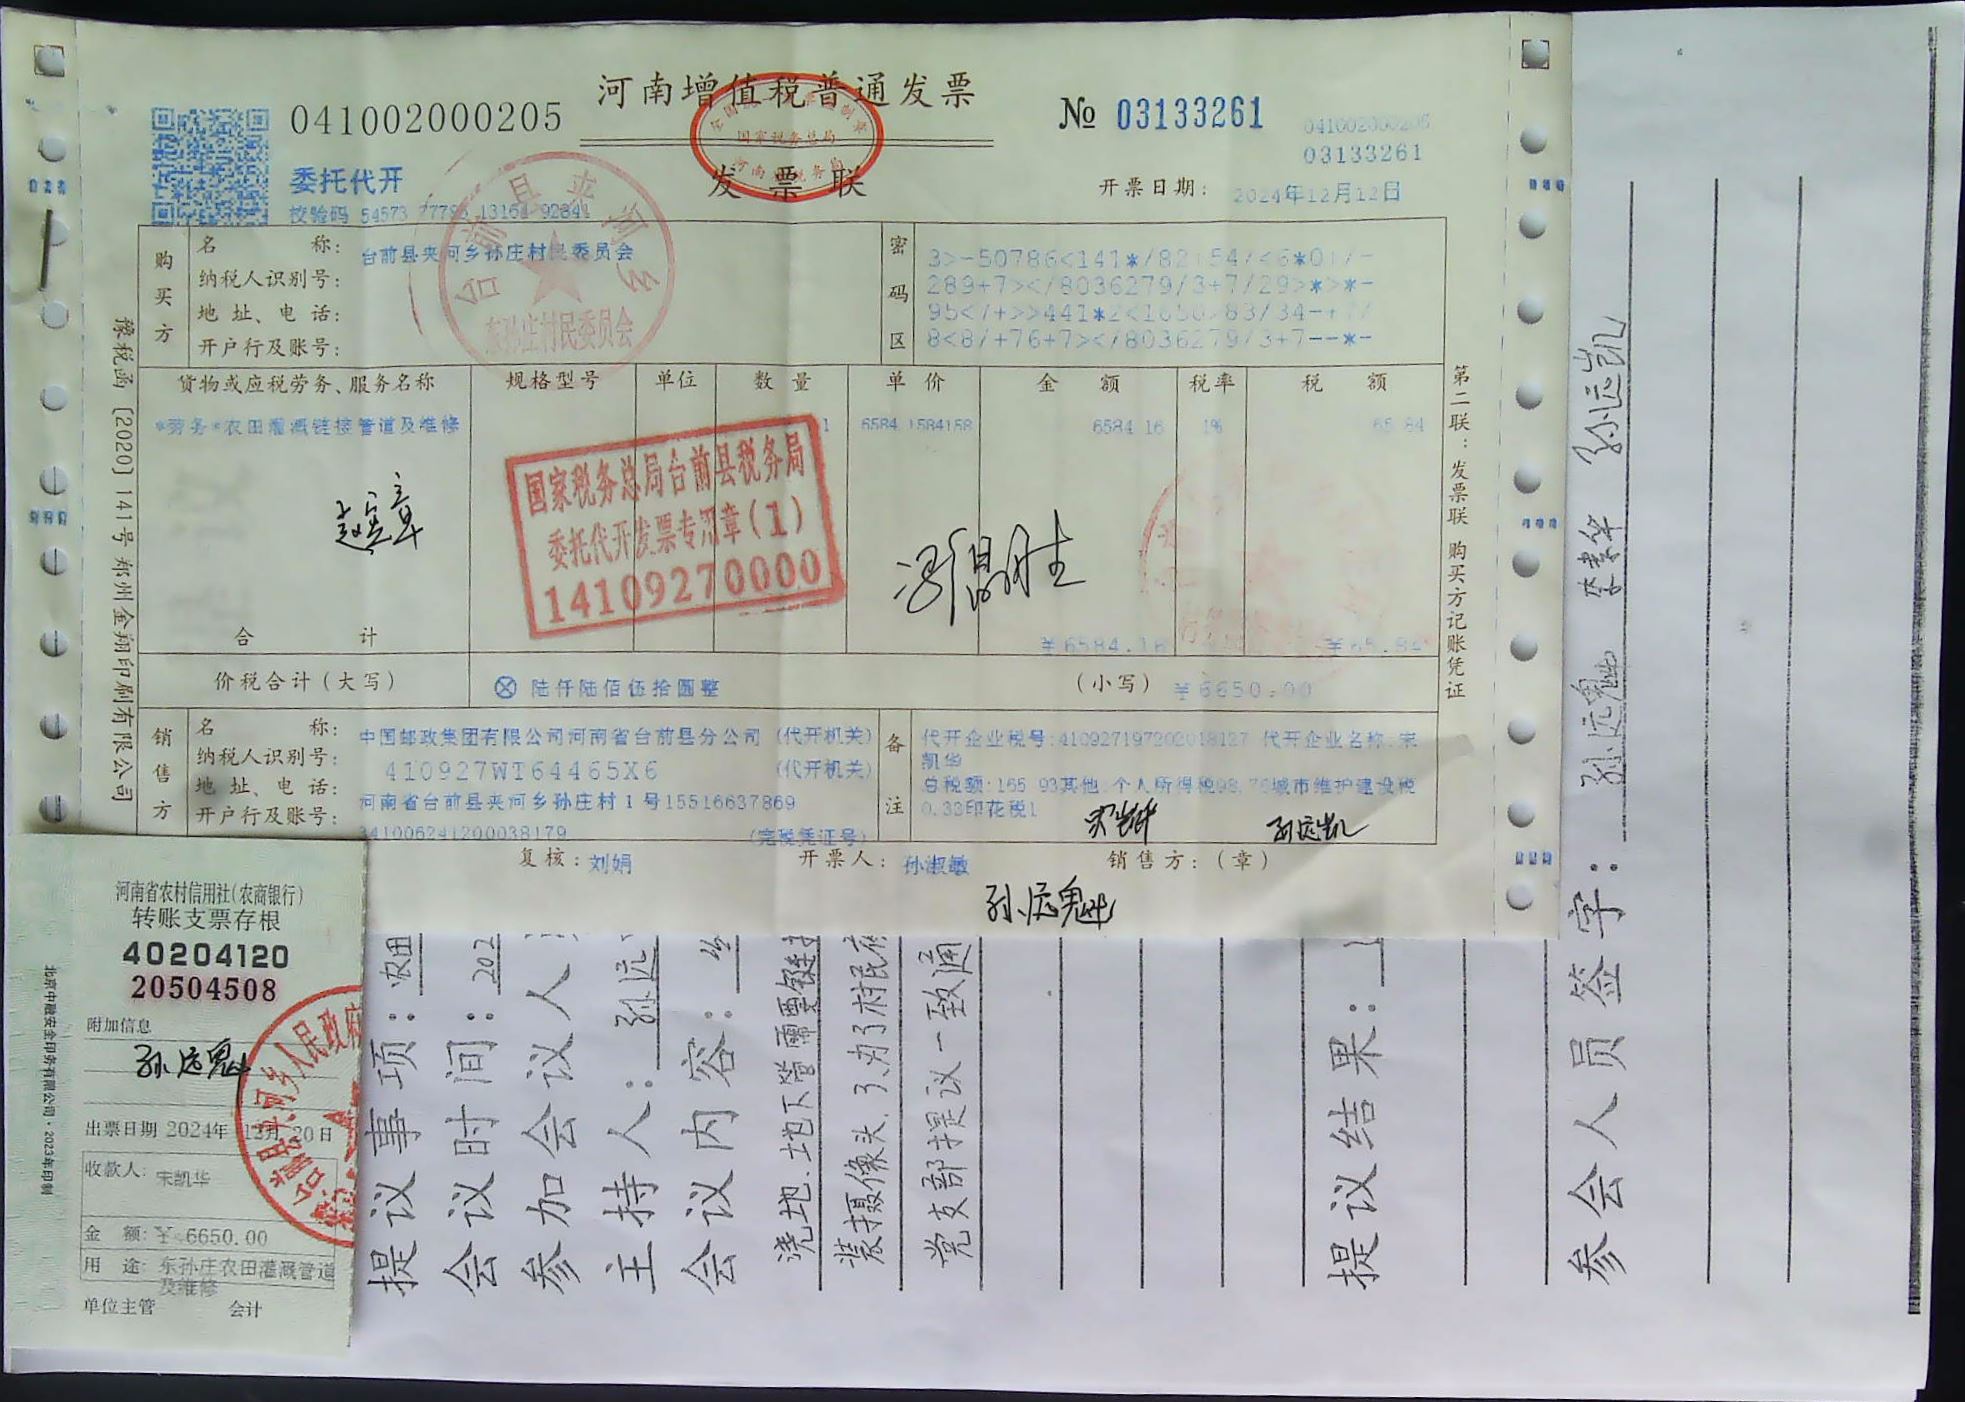 河南增值税普通发票
发票联
041002000205
№ 03133261
041002000205
03133261
委托代开
校验码
开票日期: 2024年12月12日
全国
国家税务总局
购买方
名称: 台前县夹河乡孙庄村民委员会
纳税人识别号:
地址、电话:
开户行及账号:
密码区
台前县夹河乡
东孙庄村民委员会
货物或应税劳务、服务名称 规格型号 单位 数量 单价 金额 税率 税额
*劳务*农田灌溉链接管道及维修 1 6584.1584158 6584.16 1% 65.84
国家税务总局台前县税务局
委托代开发票专用章(1)
14109270000
合计 ¥6584.16 ¥65.84
价税合计(大写) ⊗ 陆仟陆佰伍拾圆整 (小写) ¥6650.00
销售方
名称: 中国邮政集团有限公司河南省台前县分公司 (代开机关)
纳税人识别号: 410927WT64465X6 (代开机关)
地址、电话: 河南省台前县夹河乡孙庄村1号15516637869
开户行及账号: 341006241200038179 (完税凭证号)
备注
代开企业税号:410927197202018127 代开企业名称:宋
凯华
总税额:165.93其他:个人所得税98.76城市维护建设税
0.33印花税1
宋凯华 孙远凯
复核: 刘娟 开票人: 孙淑敏 销售方:(章)
孙远魁
豫税函〔2020〕141号郑州金翔印刷有限公司
第二联:发票联 购买方记账凭证
河南省农村信用社(农商银行)
转账支票存根
40204120
20504508
附加信息
孙远魁
出票日期 2024年 12月 20日
收款人: 宋凯华
金额: ¥ 6650.00
用途: 东孙庄农田灌溉管道
及维修
单位主管 会计
北京中融安全印务有限公司·2023年印制
提议事项: 农田
会议时间: 202
参加会议人
主持人: 孙远
会议内容:
浇地、地下管需要链接
装摄像头、
党支部提议一致通
提议结果:
参会人员签字: 孙远魁 孙远凯